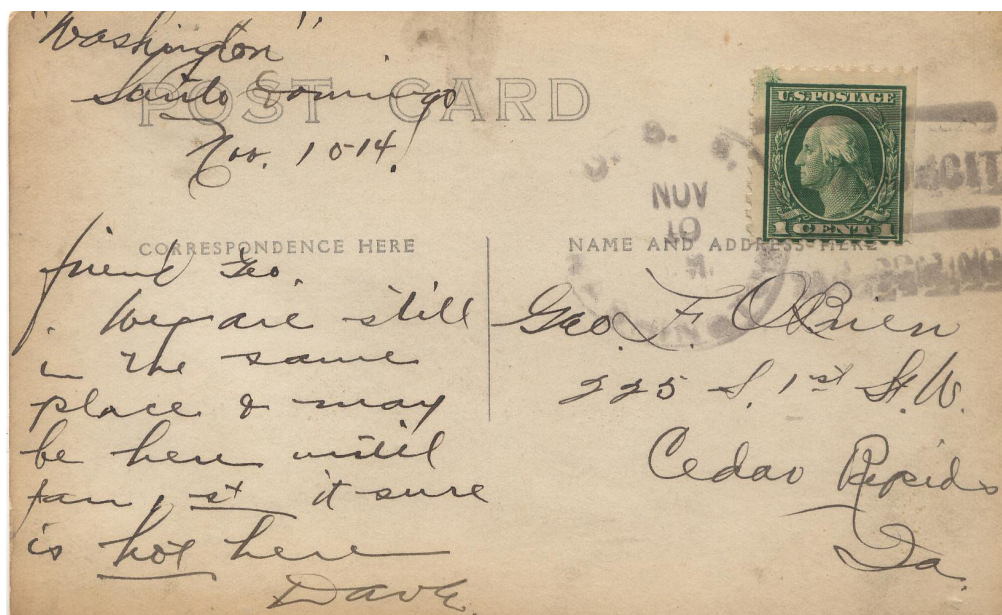 "Washington"
Santo Domingo
Nov. 10-14.
POST CARD
U.S. POSTAGE
1 CENT 1
U. S. S.
NOV
10
CORRESPONDENCE HERE
NAME AND ADDRESS HERE
friend Geo.
We are still
in the same
place & may
be here until
Jan, 1st it sure
is hot here
Dave.
Geo. F. O'Brien
225 S. 1st St. W.
Cedar Rapids
Ia.